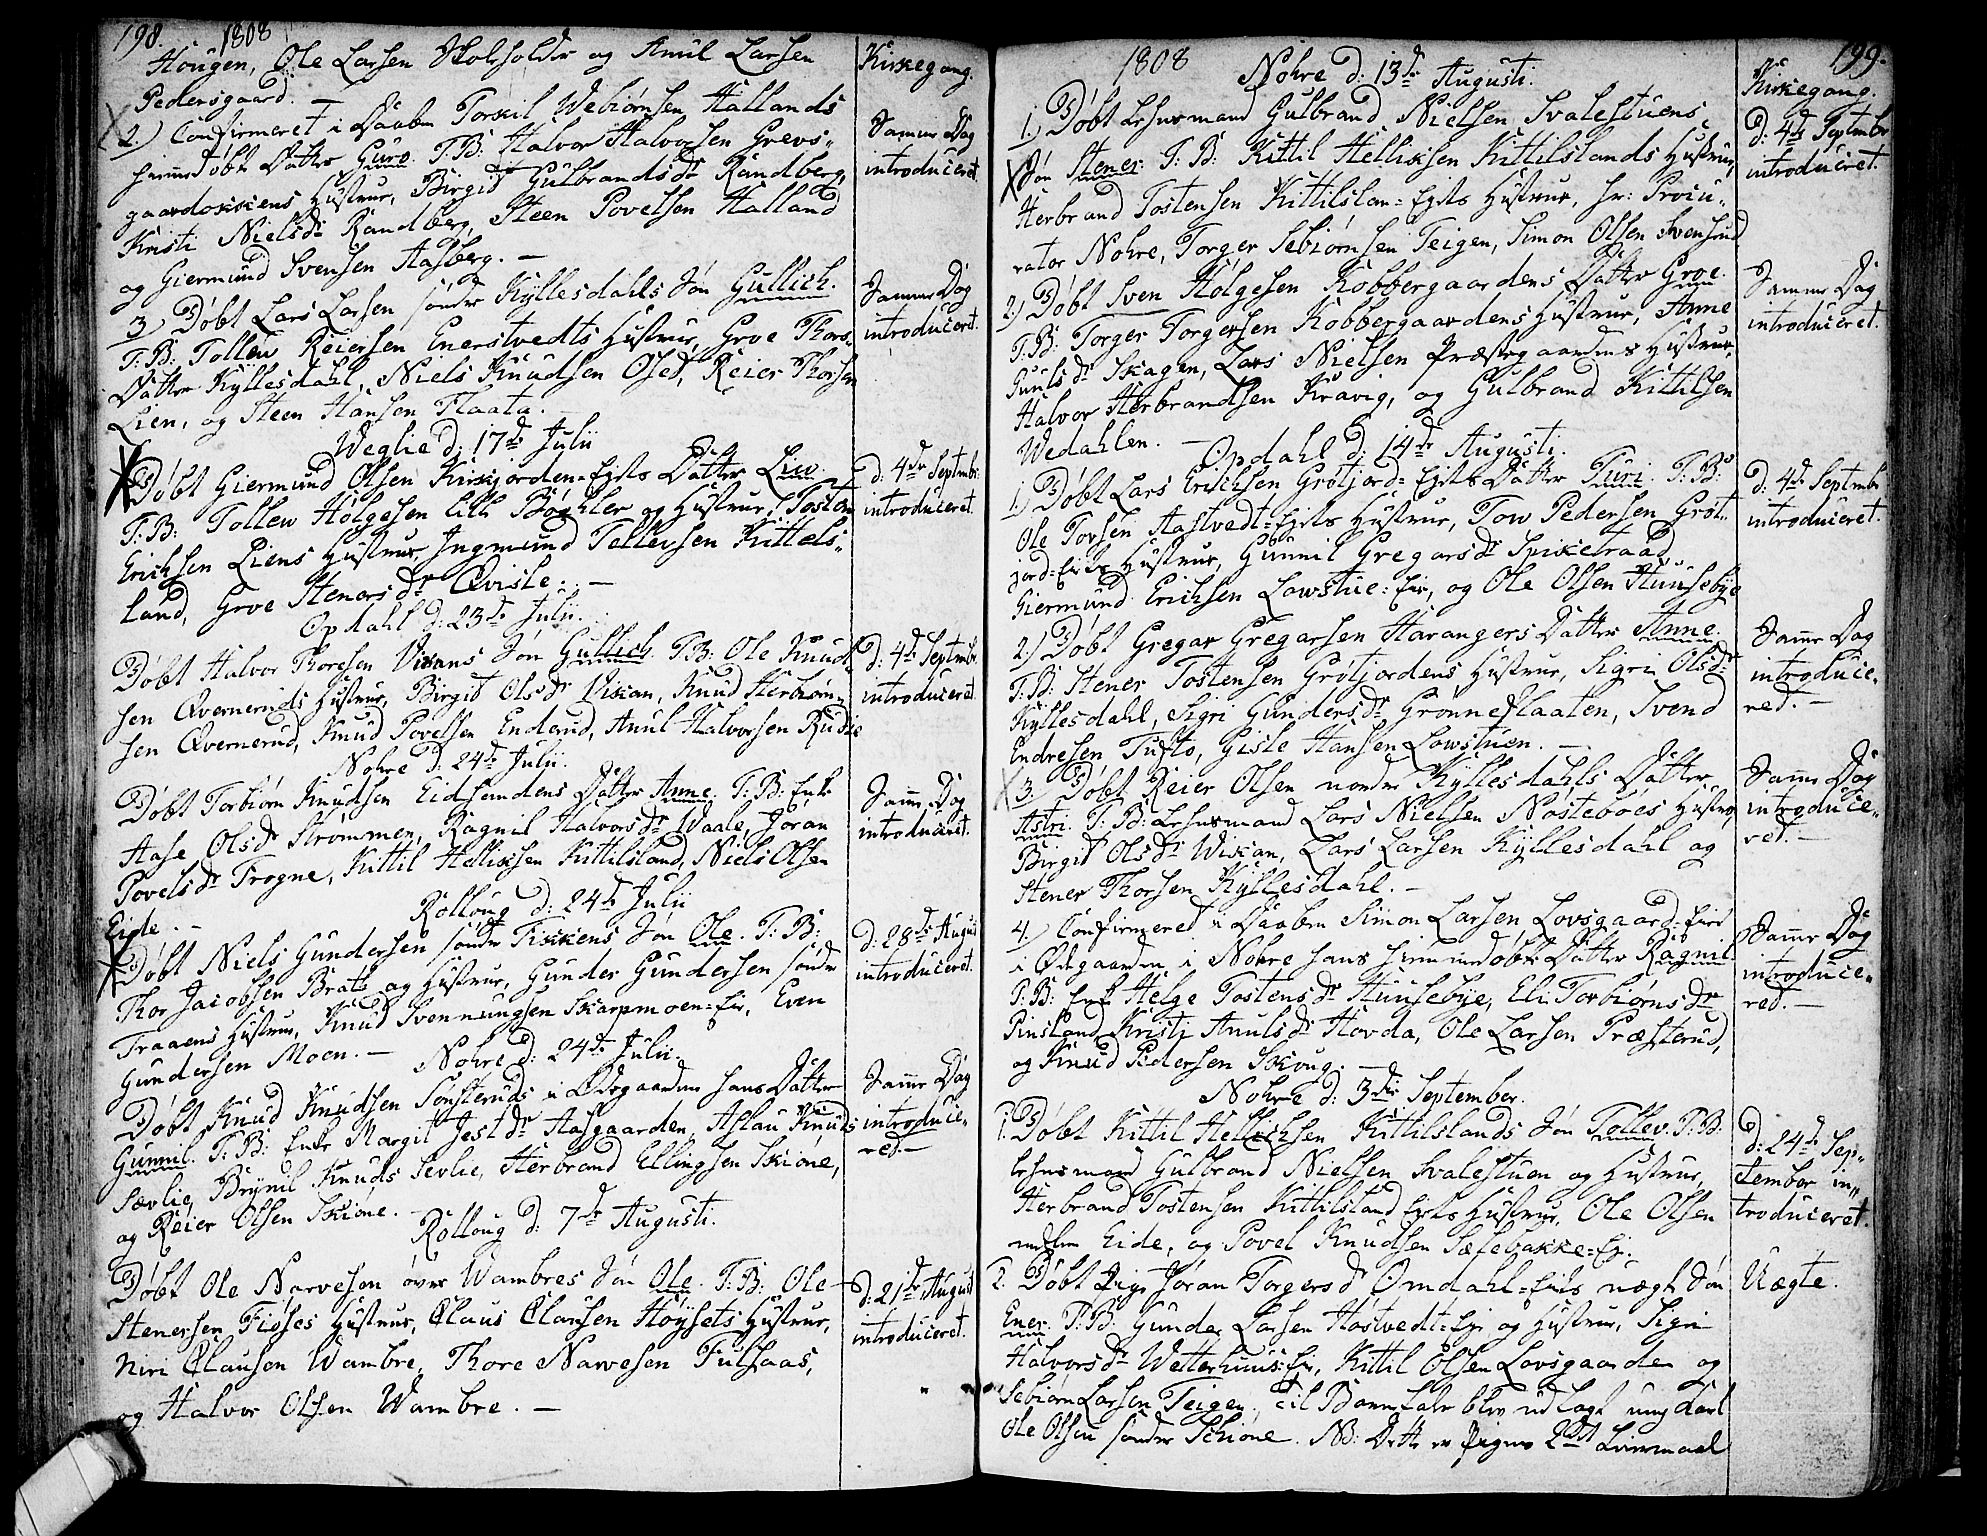 198. 1808
Hougen, Ole Larsen Skoleholder og Amul Larsen
Pedersgaard. —
2.) Confirmeret i Daaben Torkil Webiørnsen Hallands
hiemedøbt Datter Guro. T. B: Halvor Halvorsen Grevs-
gaardokkens Hustrue, Birgit Gulbrandsdr Randberg,
Kristi Nielsdr Randberg, Steen Povelsen Halland
og Giermund Svensen Aasberg. —
3) Døbt Lars Larsen søndr Kyllesdahls Søn Gullich.
T. B: Tollew Reiersen Enerstvedts Hustrue, Groe Thors
Datter Kyllesdahl, Niels Knudsen Oset, Reier Thorsen
Lien, og Steen Hansen Flaata. —
Weglie d: 17de Julii
Døbt Giermund Olsen Kirkjorden-Eiets Datter Liv.
T. B: Tollew Holgesen lille Bøghler og Hustrue, Tosten
Erichsen Liens Hustrue, Ingmund Tollevsen Kittels-
land, Groe Stenersdr Qvisle. —
Opdahl d: 23de Julii.
Døbt Halvor Thoresen Vikans Søn Gullich. T. B: Ole Knud-
sen Qverneruds Hustrue, Birgit Olsdr Vikan, Knud Herbiørn-
sen Qvernerud, Knud Povelsen Enderud, Amul Halvorsen Rudie
Nohre d: 24de Julii.
Døbt Torbiørn Knudsen Eidsendens Datter Anne. T. B: Enke
Aase Olsdr Strømmen, Ragnil Halvorsdr Waale, Jøran
Povelsdr Frogne, Kittil Hellixsen Kittilsland, Niels Olsen
Eide. —
Rolloug d: 24de Julii
Døbt Niels Gundersen søndr Fikkens Søn Ole. T. B:
Thor Jacobsen Bratz og Hustrue, Gunder Gundersen søndr
Traaens Hustrue, Knud Svennungsen Skarpmoen-Eie, Even
Gundersen Moen. —
Nohre d: 24de Julii.
Døbt Knud Knudsen Sønsteruds i Ødegaarden hans Datter
Gunnil. T. B: Enke Margit Jestdr Aasgaarden, Aslau Knuds
Sævlie, Brynil Knuds Sevlie, Herbrand Ellingsen Skiøne,
og Reier Olsen Skiøne. —
Rolloug d: 7de Augusti.
Døbt Ole Narvesen øvre Wambres Søn Ole. T. B: Ole
Stenersen Fiøses Hustrue, Claus Clausen Høysets Hustrue,
Niri Clausen Wambre, Thore Narvesen Fulsaas,
og Halvor Olsen Wambre. —
Kirkegang.
Samme Dag
introduceret.
Samme Dag
introduceret.
d: 4de Septembr
introduceret.
d: 4de Septembr.
introduceret.
Samme Dag
introduceret.
d: 28de August
introduceret.
Samme Dag
introduce-
ret. —
d: 21de August
introduceret.
1808 199.
Nohre d: 13de Augusti.
1.) Døbt Lehnsmand Gulbrand Nielsen Svalestuens
Søn Stener. T. B: Kittil Hellixsen Kittilslands Hustrue,
Herbrand Tostensen Kittilslan-Eiets Hustrue, Hr: Procu-
rator Nohre, Torger Sebiørnsen Teigen, Simon Olsen Svensrud
2.) Døbt Sven Holgesen Kobbergaardens Datter Groe.
T. B: Torger Torgersen Kobbergaardens Hustrue, Anne
Guulsdr Skagen, Lars Nielsen Præstegaardens Hustrue,
Halvor Herbrandsen Kravig, og Gulbrand Kittilsen
Wedahlen. —
Opdahl d: 14de Augusti.
1.) Døbt Lars Erichsen Grøtjord-Eiets Datter Turi. T. B:
Ole Torsen Aastvedt-Eiets Hustrue, Tow Pedersen Grøt-
jord-Eiets Hustrue, Gunnil Gregarsdr Spikelraad
Giermund Erichsen Lowstue-Eie, og Ole Olsen Huusebye
2.) Døbt Gregar Gregarsen Harangers Datter Anne.
T. B: Stener Tostensen Grøtjordens Hustrue, Sigri Olsdr
Kyllesdahl, Sigri Gundersdr Grønneflaaten, Svend
Endresen Tufto, Gisle Hansen Lowstuen. —
3. Døbt Reier Olsen nordre Kyllesdahls Datter
Astri. T. B: Lehnsmand Lars Nielsen Nøstebøes Hustrue,
Birgit Olsdr Wikan, Lars Larsen Kyllesdahl og
Stener Thorsen Kyllesdahl. —
4.) Confirmeret i Daaben Simon Larsen Lovsgaard-Eiet
i Ødegaarden i Nohre hans hiemmedøbt Datter Ragnil
T. B: Enke Helge Tostensdr Huusebye, Eli Torbiørnsdr
Pinsland, Kristi Amulsdr Hovda, Ole Larsen Præsterud,
og Knud Pedersen Skoug. —
Nohre d: 3die September.
1. Døbt Kittil Hellichsen Kittilslands Søn Tollev. T. B.
Lehnsmand Gulbrand Nielsen Svalestuen og Hustrue,
Herbrand Tostensen Kittilsland Eiets Hustrue, Ole Olsen
mellem Eide, og Povel Knudsen Sæsebakke-Ej.
2. Døbt Pige Jøran Torgersdr Omdahl-Eiets uægte Søn
Ener. T. B: Gunder Larsen Hostvedt-Eje og Hustrue, Sigri
Halvorsdr Wetterhuus-Eie, Kittil Olsen Lovsgaarden og
Sebiørn Larsen Teigen. Til Barnefader blev udlagt ung Karl
Ole Olsen søndre Schiøne. NB: Dette er Pigens 2det Leiermaal
Kirkegang.
D: 4de Septembr
introduceret.
Samme Dag
introduceret.
D: 4de Septembr
introduceret.
Samme Dag
introduce-
ret. —
Samme Dag
introduce-
ret. —
Samme Dag
introduce-
ret. —
d: 24de Sep-
tember in-
troduceret.
Uægte.